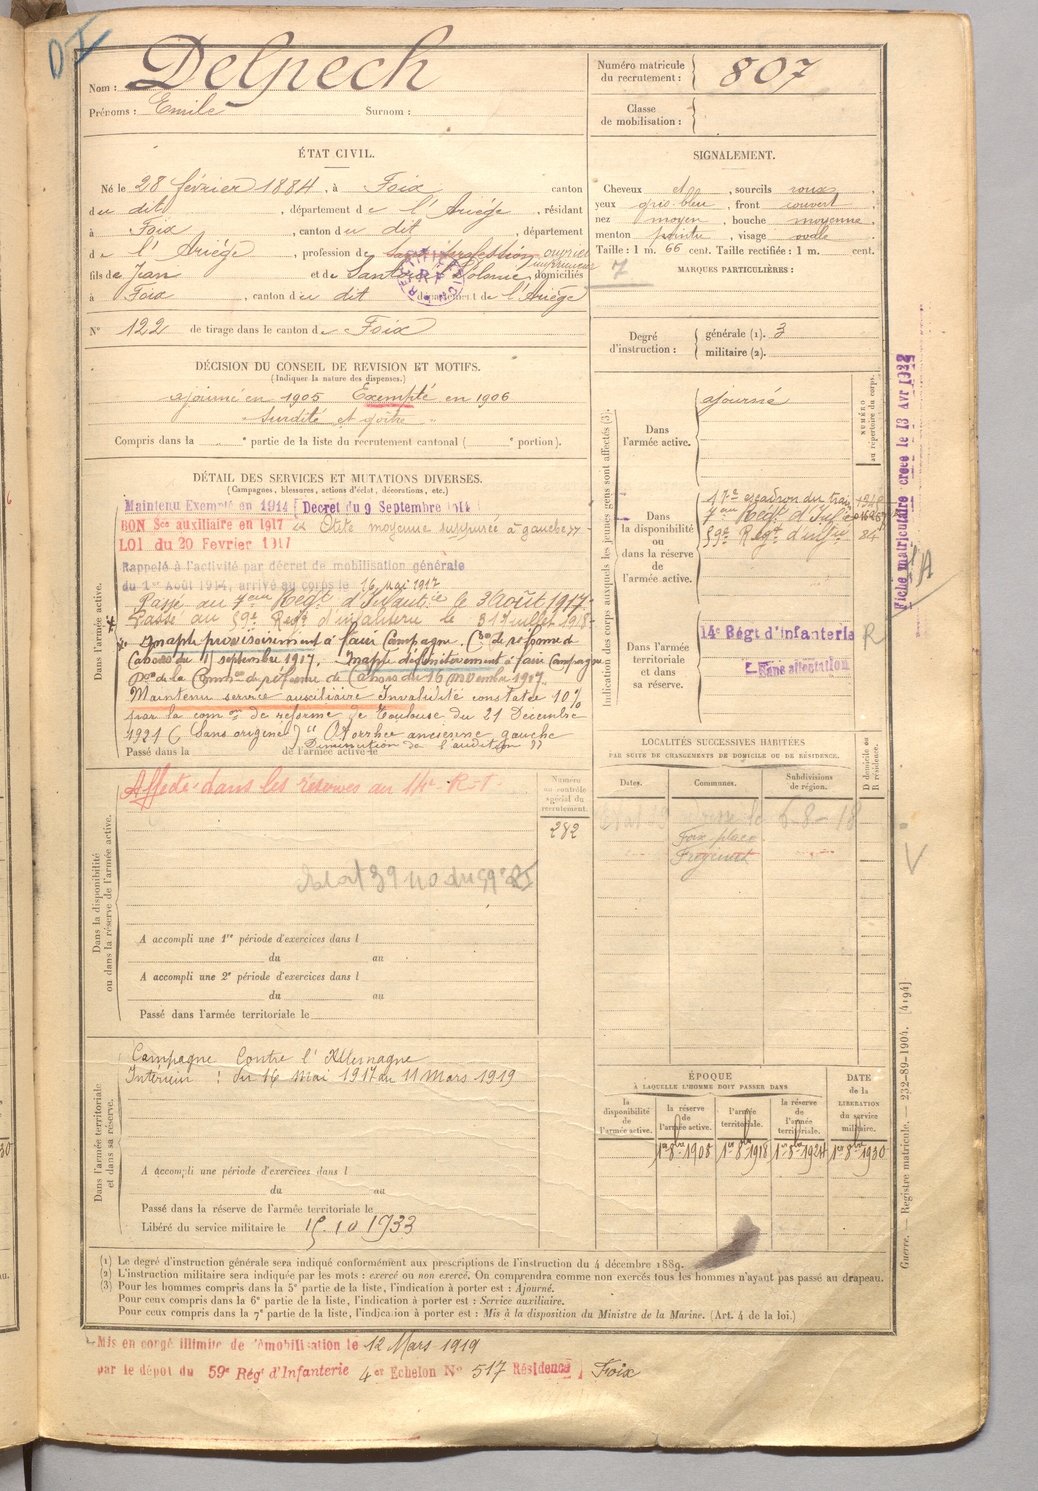 Nom : Delpech
Prénoms : Emile Surnom :
Numéro matricule du recrutement : 807
Classe de mobilisation :
ÉTAT CIVIL.
Né le 28 février 1884, à Foix canton
du dit, département de l'Ariège, résidant
à Foix, canton du dit, département
de l'Ariège, profession de sans profession ouvrier
fils de Jean et de domiciliés
à Foix, canton du dit département de l'Ariège
N° 122 de tirage dans le canton de Foix
SIGNALEMENT.
Cheveux et, sourcils roux,
yeux gris-bleu, front couvert,
nez moyen, bouche moyenne,
menton pointu, visage ovale,
Taille : 1 m. 66 cent. Taille rectifiée : 1 m. cent.
7
MARQUES PARTICULIÈRES :
Degré d'instruction : générale (1). 3
militaire (2).
DÉCISION DU CONSEIL DE REVISION ET MOTIFS.
(Indiquer la nature des dispenses.)
ajourné en 1905 Exempté en 1906
Surdité et goître
Compris dans la e partie de la liste du recrutement cantonal ( e portion).
DÉTAIL DES SERVICES ET MUTATIONS DIVERSES.
(Campagnes, blessures, actions d'éclat, décorations, etc.)
Dans l'armée active.
Maintenu Exempté en 1914 [Décret du 9 Septembre 1914
BON Sce auxiliaire en 1917 Otite moyenne suppurée à gauche
LOI du 20 Fevrier 1917
Rappelé à l'activité par décret de mobilisation générale
du 1er Août 1914, arrivé au corps le 16 mai 1917
Passé au 7eme Regt d'Infantie le 3 Août 1917
Passé au 59e Regt d'infanterie le 31 Juillet 1918
Inapte provisoirement à faire Campagne. Con de reforme de
Cahors du 11 septembre 1917. Inapte définitivement à faire Campagne
Don de la Comon de réforme de Cahors du 16 novembre 1917.
Maintenu service auxiliaire Invalidité constatée 10%
par la comon de reforme de Toulouse du 21 Décembre
1921 (Sans origine) "Otorrhée ancienne gauche
Diminution de l'audition"
Passé dans la de l'armée active le
Indication des corps auxquels les jeunes gens sont affectés (3).
NUMÉRO au répertoire du corps.
Dans l'armée active. ajourné
Dans la disponibilité ou dans la réserve de l'armée active.
17e escadron du train
7eme Regt d'Infie
59e Regt d'infie 84
Dans l'armée territoriale et dans sa réserve.
14e Régt d'Infanterie R
Sans affectation
Fiche matriculaire créée le 13 Avr 1932
Dans la disponibilité ou dans la réserve de l'armée active.
Affecté dans les réserves au 14e R-I.
Numéro au contrôle spécial du recrutement.
282
A accompli une 1re période d'exercices dans l
du au
A accompli une 2e période d'exercices dans l
du au
Passé dans l'armée territoriale le
LOCALITÉS SUCCESSIVES HABITÉES
PAR SUITE DE CHANGEMENTS DE DOMICILE OU DE RÉSIDENCE.
Dates. Communes. Subdivisions de région. D domicile ou R résidence.
6-8-18
Foix place
V
Dans l'armée territoriale et dans sa réserve.
Campagne Contre l'Allemagne
Intérieur : du 16 mai 1917 au 11 Mars 1919
A accompli une période d'exercices dans l
du au
Passé dans la réserve de l'armée territoriale le
Libéré du service militaire le 15.10.1933
ÉPOQUE
À LAQUELLE L'HOMME DOIT PASSER DANS
DATE de la LIBÉRATION du service militaire.
la disponibilité de l'armée active. la réserve de l'armée active. l'armée territoriale. la réserve de l'armée territoriale.
1er 8bre 1908 1er 8bre 1918 1er 8bre 1924 1er 8bre 1930
(1) Le degré d'instruction générale sera indiqué conformément aux prescriptions de l'instruction du 4 décembre 1889.
(2) L'instruction militaire sera indiquée par les mots : exercé ou non exercé. On comprendra comme non exercés tous les hommes n'ayant pas passé au drapeau.
(3) Pour les hommes compris dans la 5e partie de la liste, l'indication à porter est : Ajourné.
Pour ceux compris dans la 6e partie de la liste, l'indication à porter est : Service auxiliaire.
Pour ceux compris dans la 7e partie de la liste, l'indication à porter est : Mis à la disposition du Ministre de la Marine. (Art. 4 de la loi.)
Guerre. — Registre matricule. — 232-89-1904. [4194]
Mis en congé illimité de démobilisation le 12 Mars 1919
par le dépot du 59e Rég. d'Infanterie 4er Echelon N° 517 Résidence] Foix